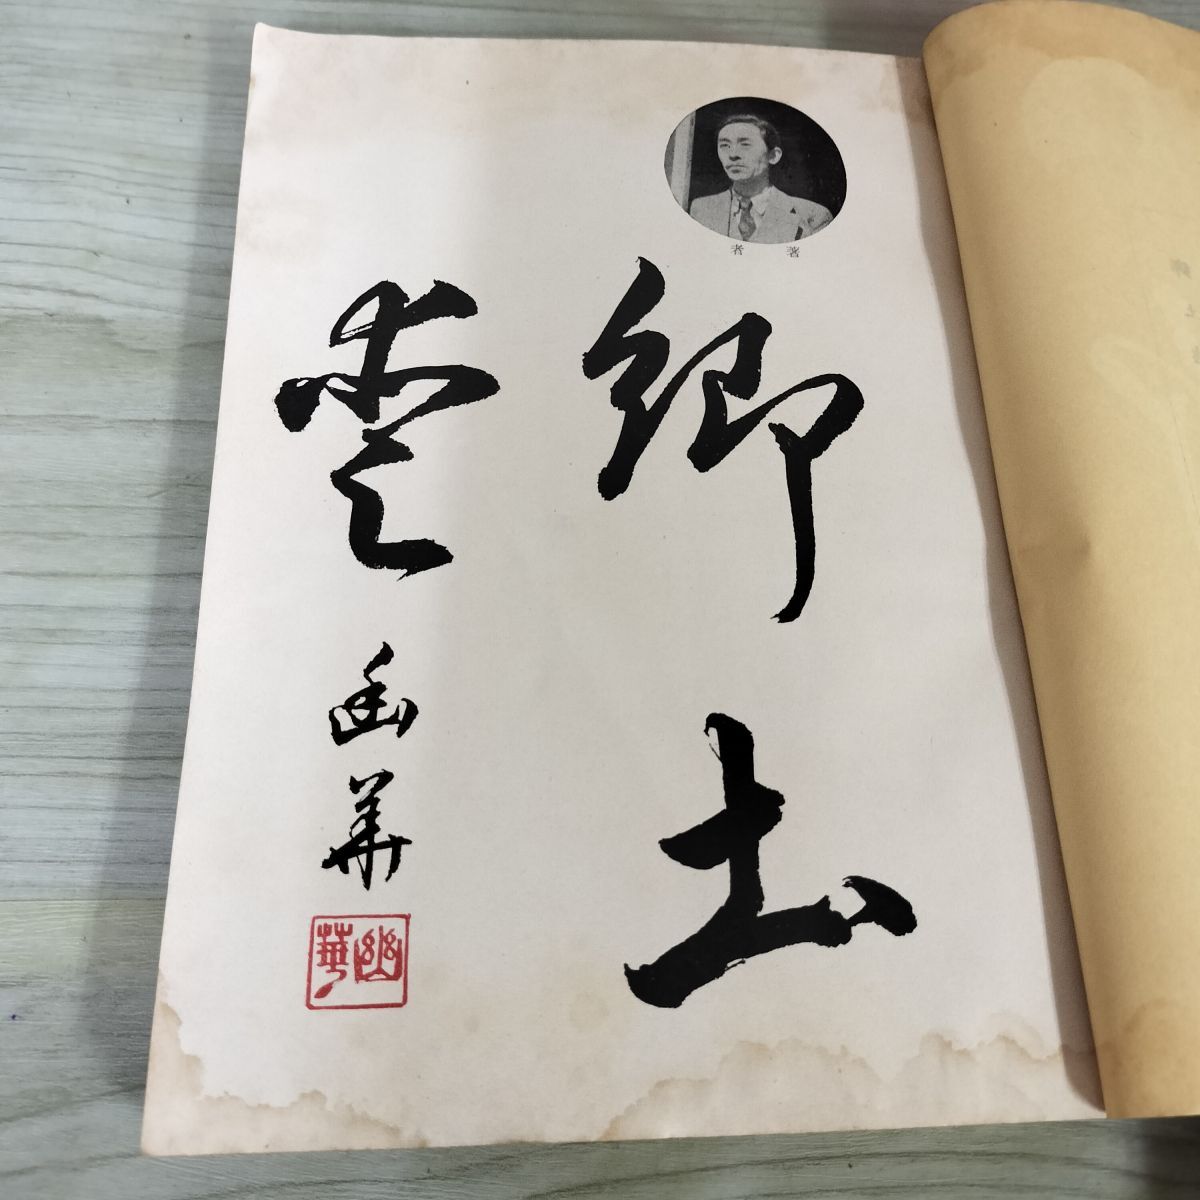 著者
郷土
愛
幽華
幽華